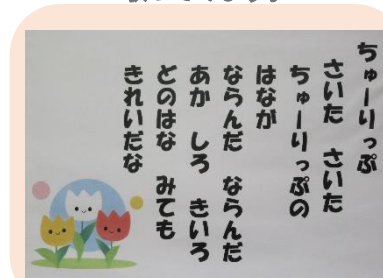 ちゅーりっぷ
さいた　さいた
ちゅーりっぷの
はなが
ならんだ　ならんだ
あか　しろ　きいろ
どのはな　みても
きれいだな